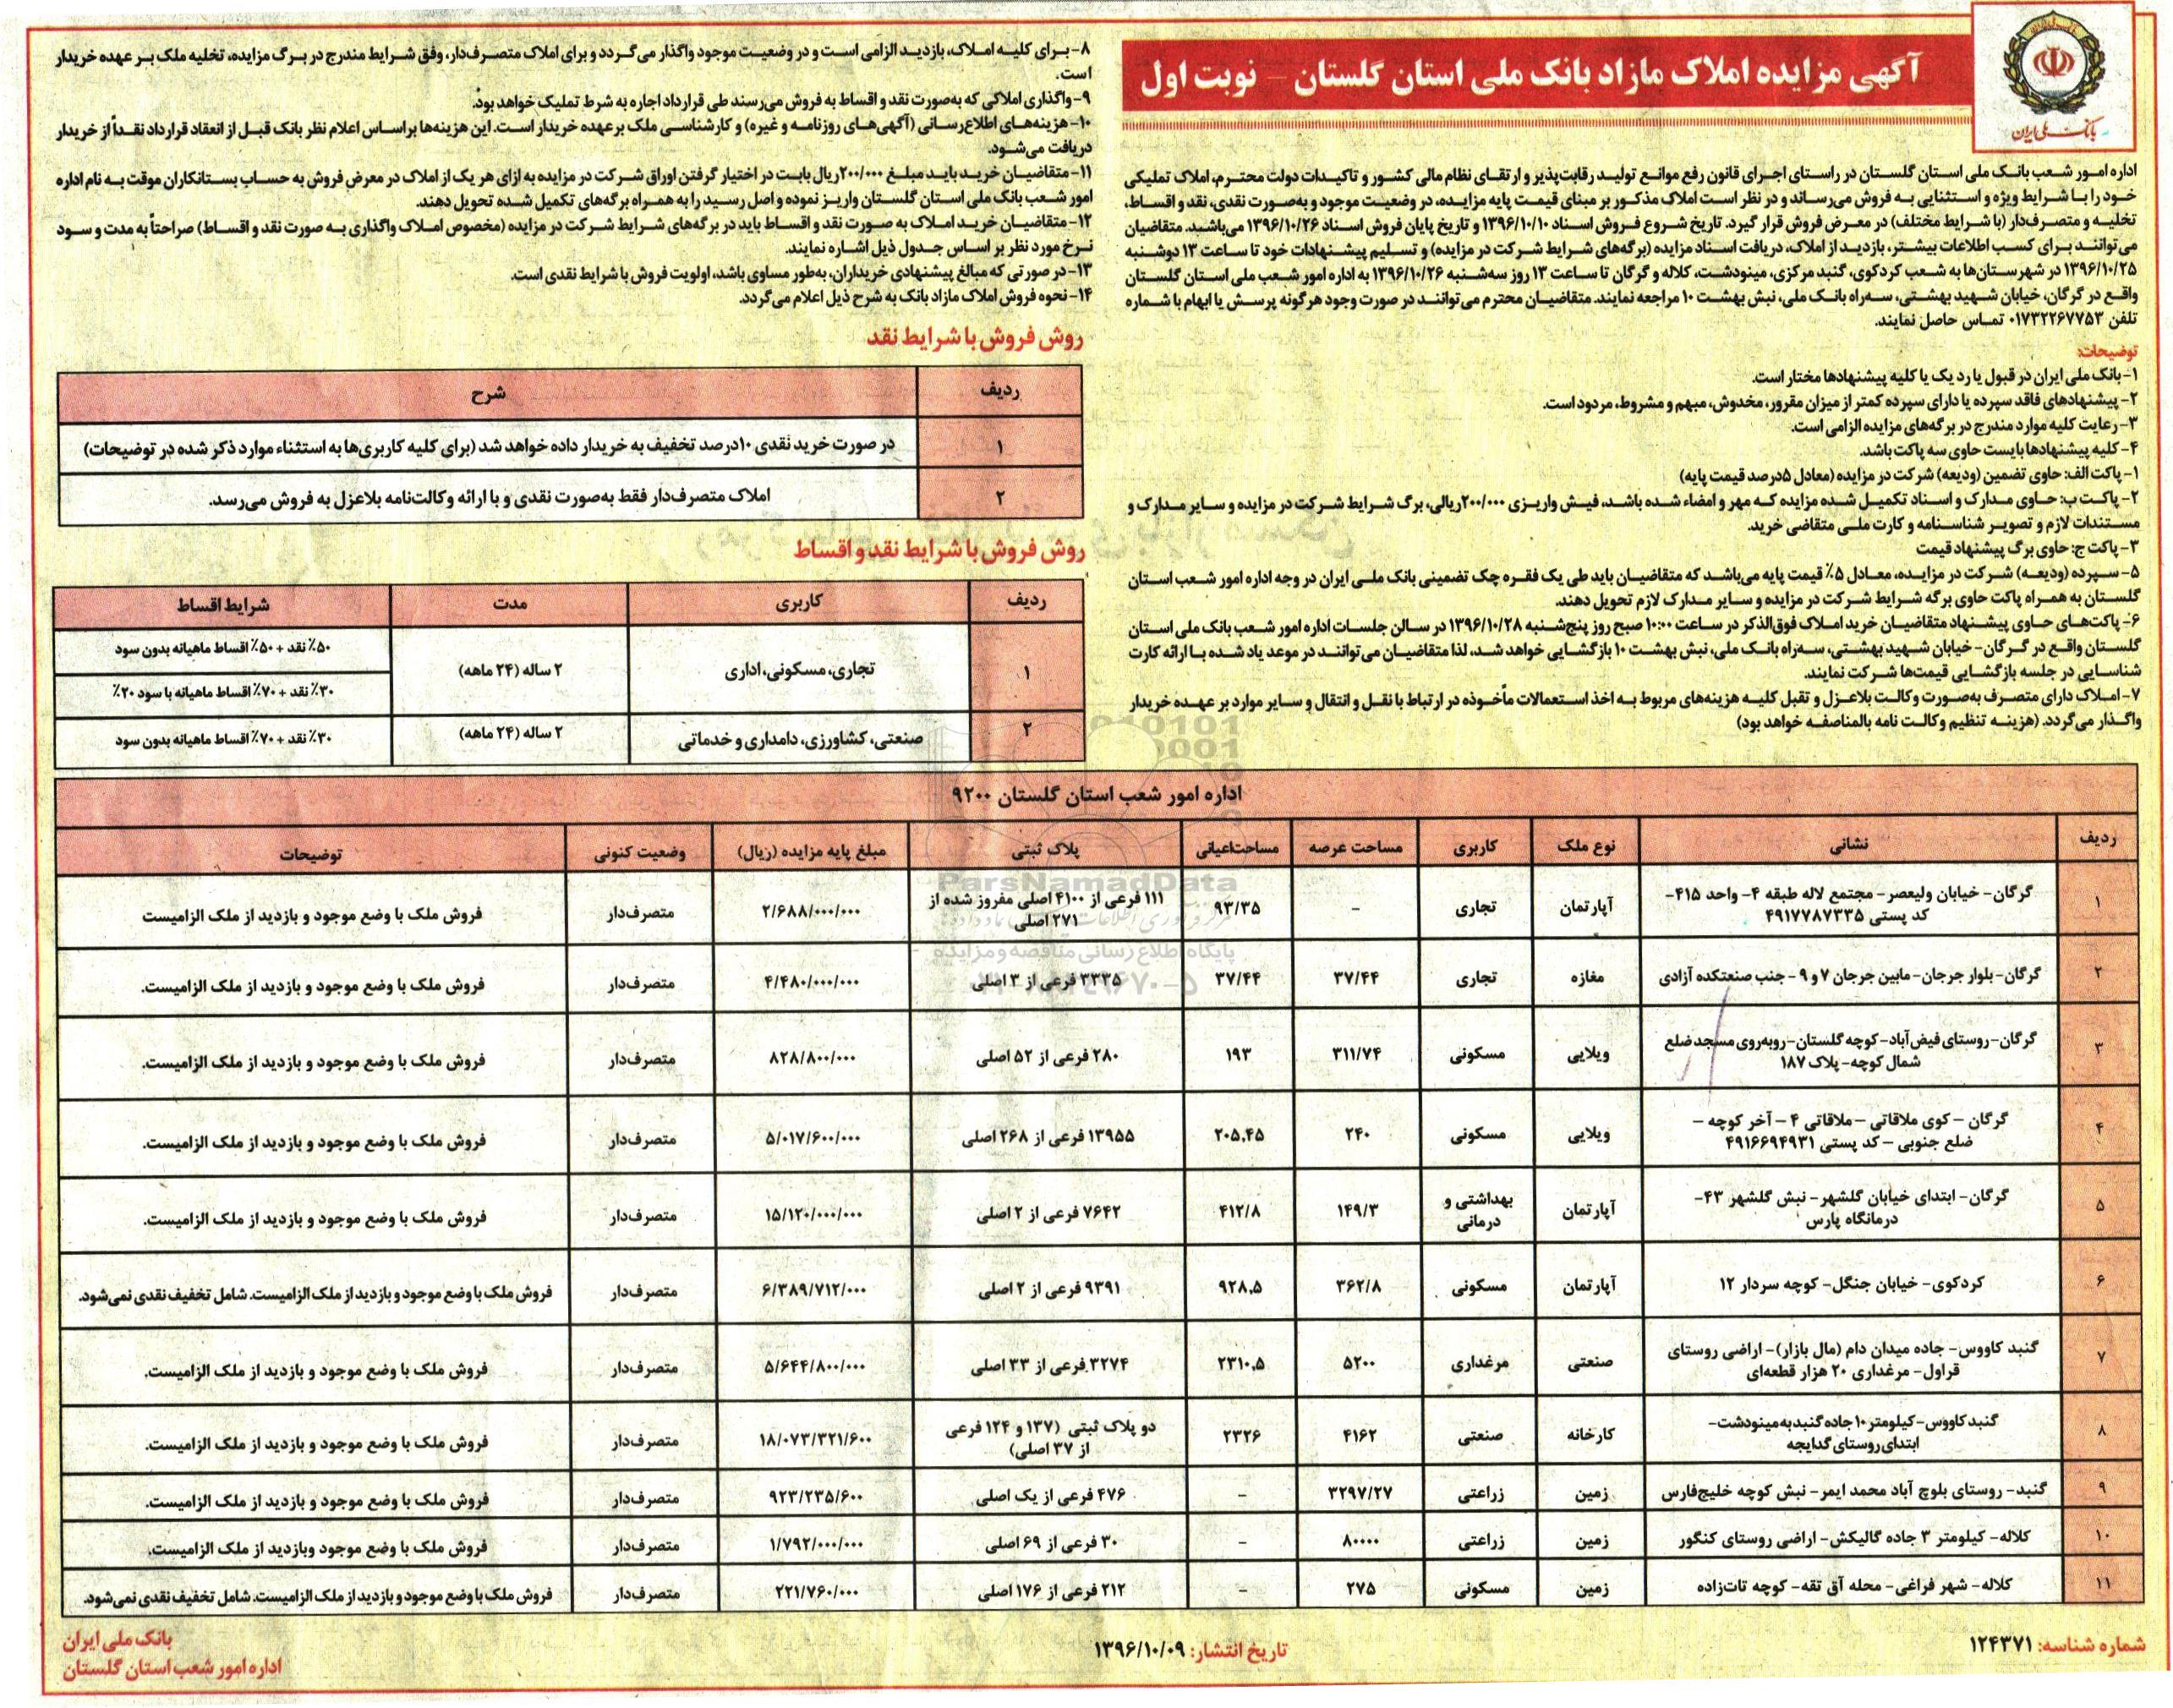 بانک ملی ایران
آگهی مزایده املاک مازاد بانک ملی استان گلستان – نوبت اول
اداره امور شعب بانک ملی استان گلستان در راستای اجرای قانون رفع موانع تولید رقابت‌پذیر و ارتقای نظام مالی کشور و تاکیدات دولت محترم، املاک تملیکی
خود را با شرایط ویژه و استثنایی به فروش می‌رساند و در نظر است املاک مذکور بر مبنای قیمت پایه مزایده، در وضعیت موجود و به‌صورت نقدی، نقد و اقساط،
تخلیه و متصرف‌دار (با شرایط مختلف) در معرض فروش قرار گیرد. تاریخ شروع فروش اسناد ۱۳۹۶/۱۰/۱۰ و تاریخ پایان فروش اسناد ۱۳۹۶/۱۰/۲۶ می‌باشد. متقاضیان
می‌توانند برای کسب اطلاعات بیشتر، بازدید از املاک، دریافت اسناد مزایده (برگه‌های شرایط شرکت در مزایده) و تسلیم پیشنهادات خود تا ساعت ۱۳ دوشنبه
۱۳۹۶/۱۰/۲۵ در شهرستان‌ها به شعب کردکوی، گنبد مرکزی، مینودشت، کلاله و گرگان تا ساعت ۱۳ روز سه‌شنبه ۱۳۹۶/۱۰/۲۶ به اداره امور شعب ملی استان گلستان
واقع در گرگان، خیابان شهید بهشتی، سه‌راه بانک ملی، نبش بهشت ۱۰ مراجعه نمایند. متقاضیان محترم می‌توانند در صورت وجود هرگونه پرسش یا ابهام با شماره
تلفن ۰۱۷۳۲۲۶۷۷۵۳ تماس حاصل نمایند.
توضیحات:
۱- بانک ملی ایران در قبول یا رد یک یا کلیه پیشنهادها مختار است.
۲- پیشنهادهای فاقد سپرده یا دارای سپرده کمتر از میزان مقرور، مخدوش، مبهم و مشروط، مردود است.
۳- رعایت کلیه موارد مندرج در برگه‌های مزایده الزامی است.
۴- کلیه پیشنهادها بایست حاوی سه پاکت باشد.
۱- پاکت الف: حاوی تضمین (ودیعه) شرکت در مزایده (معادل ۵درصد قیمت پایه)
۲- پاکت ب: حاوی مدارک و اسناد تکمیل شده مزایده که مهر و امضاء شده باشد، فیش واریزی ۲۰۰/۰۰۰ریالی، برگ شرایط شرکت در مزایده و سایر مدارک و
مستندات لازم و تصویر شناسنامه و کارت ملی متقاضی خرید.
۳- پاکت ج: حاوی برگ پیشنهاد قیمت
۵- سپرده (ودیعه) شرکت در مزایده، معادل ۵٪ قیمت پایه می‌باشد که متقاضیان باید طی یک فقره چک تضمینی بانک ملی ایران در وجه اداره امور شعب استان
گلستان به همراه پاکت حاوی برگه شرایط شرکت در مزایده و سایر مدارک لازم تحویل دهند.
۶- پاکت‌های حاوی پیشنهاد متقاضیان خرید املاک فوق‌الذکر در ساعت ۱۰:۰۰ صبح روز پنج‌شنبه ۱۳۹۶/۱۰/۲۸ در سالن جلسات اداره امور شعب بانک ملی استان
گلستان واقع در گرگان- خیابان شهید بهشتی، سه‌راه بانک ملی، نبش بهشت ۱۰ بازگشایی خواهد شد، لذا متقاضیان می‌توانند در موعد یاد شده با ارائه کارت
شناسایی در جلسه بازگشایی قیمت‌ها شرکت نمایند.
۷- املاک دارای متصرف به‌صورت وکالت بلاعزل و تقبل کلیه هزینه‌های مربوط به اخذ استعمالات مأخوذه در ارتباط با نقل و انتقال و سایر موارد بر عهده خریدار
واگذار می‌گردد. (هزینه تنظیم وکالت نامه بالمناصفه خواهد بود)
۸- برای کلیه املاک، بازدید الزامی است و در وضعیت موجود واگذار می‌گردد و برای املاک متصرف‌دار، وفق شرایط مندرج در برگ مزایده، تخلیه ملک بر عهده خریدار
است.
۹- واگذاری املاکی که به‌صورت نقد و اقساط به فروش می‌رسند طی قرارداد اجاره به شرط تملیک خواهد بود.
۱۰- هزینه‌های اطلاع‌رسانی (آگهی‌های روزنامه و غیره) و کارشناسی ملک برعهده خریدار است. این هزینه‌ها براساس اعلام نظر بانک قبل از انعقاد قرارداد نقداً از خریدار
دریافت می‌شود.
۱۱- متقاضیان خرید باید مبلغ ۲۰۰/۰۰۰ریال بابت در اختیار گرفتن اوراق شرکت در مزایده به ازای هر یک از املاک در معرض فروش به حساب بستانکاران موقت به نام اداره
امور شعب بانک ملی استان گلستان واریز نموده و اصل رسید را به همراه برگه‌های تکمیل شده تحویل دهند.
۱۲- متقاضیان خرید املاک به صورت نقد و اقساط باید در برگه‌های شرایط شرکت در مزایده (مخصوص املاک واگذاری به صورت نقد و اقساط) صراحتاً به مدت و سود
نرخ مورد نظر بر اساس جدول ذیل اشاره نمایند.
۱۳- در صورتی که مبالغ پیشنهادی خریداران، به‌طور مساوی باشد، اولویت فروش با شرایط نقدی است.
۱۴- نحوه فروش املاک مازاد بانک به شرح ذیل اعلام می‌گردد.
روش فروش با شرایط نقد
ردیف شرح
۱ در صورت خرید نقدی ۱۰درصد تخفیف به خریدار داده خواهد شد (برای کلیه کاربری‌ها به استثناء موارد ذکر شده در توضیحات)
۲ املاک متصرف‌دار فقط به‌صورت نقدی و با ارائه وکالت‌نامه بلاعزل به فروش می‌رسد.
روش فروش با شرایط نقد و اقساط
ردیف کاربری مدت شرایط اقساط
۱ تجاری، مسکونی، اداری ۲ ساله (۲۴ ماهه) ۵۰٪ نقد + ۵۰٪ اقساط ماهیانه بدون سود
۳۰٪ نقد + ۷۰٪ اقساط ماهیانه با سود ۲۰٪
۲ صنعتی، کشاورزی، دامداری و خدماتی ۲ ساله (۲۴ ماهه) ۳۰٪ نقد + ۷۰٪ اقساط ماهیانه بدون سود
اداره امور شعب استان گلستان ۹۲۰۰
ردیف نشانی نوع ملک کاربری مساحت عرصه مساحت‌اعیانی پلاک ثبتی مبلغ پایه مزایده (ریال) وضعیت کنونی توضیحات
۱ گرگان- خیابان ولیعصر- مجتمع لاله طبقه ۴- واحد ۴۱۵- آپارتمان تجاری – ۹۳/۳۵ ۱۱۱ فرعی از ۴۱۰۰ اصلی مفروز شده از ۲/۶۸۸/۰۰۰/۰۰۰ متصرف‌دار فروش ملک با وضع موجود و بازدید از ملک الزامیست
کد پستی ۴۹۱۷۷۸۷۳۳۵ ۲۷۱ اصلی
۲ گرگان- بلوار جرجان- مابین جرجان ۷ و ۹ - جنب صنعتکده آزادی مغازه تجاری ۳۷/۴۴ ۳۷/۴۴ ۳۳۳۵ فرعی از ۳ اصلی ۴/۴۸۰/۰۰۰/۰۰۰ متصرف‌دار فروش ملک با وضع موجود و بازدید از ملک الزامیست.
۳ گرگان- روستای فیض‌آباد- کوچه گلستان- روبه‌روی مسجد ضلع ویلایی مسکونی ۳۱۱/۷۴ ۱۹۳ ۲۸۰ فرعی از ۵۲ اصلی ۸۲۸/۸۰۰/۰۰۰ متصرف‌دار فروش ملک با وضع موجود و بازدید از ملک الزامیست.
شمال کوچه- پلاک ۱۸۷
۴ گرگان – کوی ملاقاتی – ملاقاتی ۴ – آخر کوچه – ویلایی مسکونی ۲۴۰ ۲۰۵.۴۵ ۱۳۹۵۵ فرعی از ۲۶۸ اصلی ۵/۰۱۷/۶۰۰/۰۰۰ متصرف‌دار فروش ملک با وضع موجود و بازدید از ملک الزامیست.
ضلع جنوبی – کد پستی ۴۹۱۶۶۹۴۹۳۱
۵ گرگان- ابتدای خیابان گلشهر- نبش گلشهر ۴۳- آپارتمان بهداشتی و درمانی ۱۴۹/۳ ۴۱۲/۸ ۷۶۴۲ فرعی از ۲ اصلی ۱۵/۱۲۰/۰۰۰/۰۰۰ متصرف‌دار فروش ملک با وضع موجود و بازدید از ملک الزامیست.
درمانگاه پارس
۶ کردکوی- خیابان جنگل- کوچه سردار ۱۲ آپارتمان مسکونی ۳۶۲/۸ ۹۲۸.۵ ۹۳۹۱ فرعی از ۲ اصلی ۶/۳۸۹/۷۱۲/۰۰۰ متصرف‌دار فروش ملک با وضع موجود و بازدید از ملک الزامیست. شامل تخفیف نقدی نمی‌شود.
۷ گنبد کاووس- جاده میدان دام (مال بازار)- اراضی روستای صنعتی مرغداری ۵۲۰۰ ۲۳۱۰.۵ ۳۲۷۴ فرعی از ۳۳ اصلی ۵/۶۴۴/۸۰۰/۰۰۰ متصرف‌دار فروش ملک با وضع موجود و بازدید از ملک الزامیست.
قراول- مرغداری ۲۰ هزار قطعه‌ای
۸ گنبد کاووس- کیلومتر ۱۰ جاده گنبد به مینودشت- کارخانه صنعتی ۴۱۶۲ ۲۳۲۶ دو پلاک ثبتی (۱۳۷ و ۱۲۴ فرعی ۱۸/۰۷۳/۳۲۱/۶۰۰ متصرف‌دار فروش ملک با وضع موجود و بازدید از ملک الزامیست.
ابتدای روستای گدایجه از ۳۷ اصلی)
۹ گنبد- روستای بلوچ آباد محمد ایمر- نبش کوچه خلیج‌فارس زمین زراعتی ۳۲۹۷/۲۷ – ۴۷۶ فرعی از یک اصلی ۹۲۳/۲۳۵/۶۰۰ متصرف‌دار فروش ملک با وضع موجود و بازدید از ملک الزامیست.
۱۰ کلاله- کیلومتر ۳ جاده گالیکش- اراضی روستای کنگور زمین زراعتی ۸۰۰۰۰ – ۳۰ فرعی از ۶۹ اصلی ۱/۷۹۲/۰۰۰/۰۰۰ متصرف‌دار فروش ملک با وضع موجود وبازدید از ملک الزامیست.
۱۱ کلاله- شهر فراغی- محله آق تقه- کوچه تات‌زاده زمین مسکونی ۲۷۵ – ۲۱۲ فرعی از ۱۷۶ اصلی ۲۲۱/۷۶۰/۰۰۰ متصرف‌دار فروش ملک با وضع موجود و بازدید از ملک الزامیست. شامل تخفیف نقدی نمی‌شود.
ParsNamadData
پایگاه اطلاع رسانی مناقصه و مزایده
شماره شناسه: ۱۲۴۳۷۱
تاریخ انتشار: ۱۳۹۶/۱۰/۰۹
بانک ملی ایران
اداره امور شعب استان گلستان